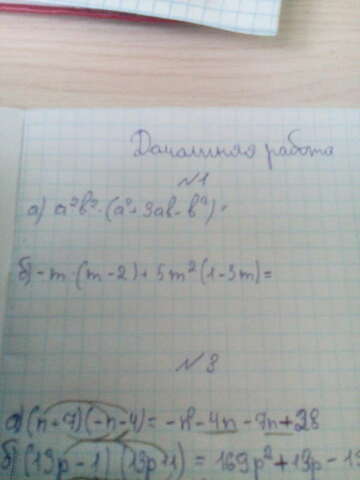 Домашняя работа
№1
а) a²b²·(a²+3ab-b²)=
б) -m·(m-2)+5m²(1-3m)=
№3
а) (n+7)(-n-4)=-n²-4n-7n+28
б) (13p-1)(13p11)=169p²+13p-13